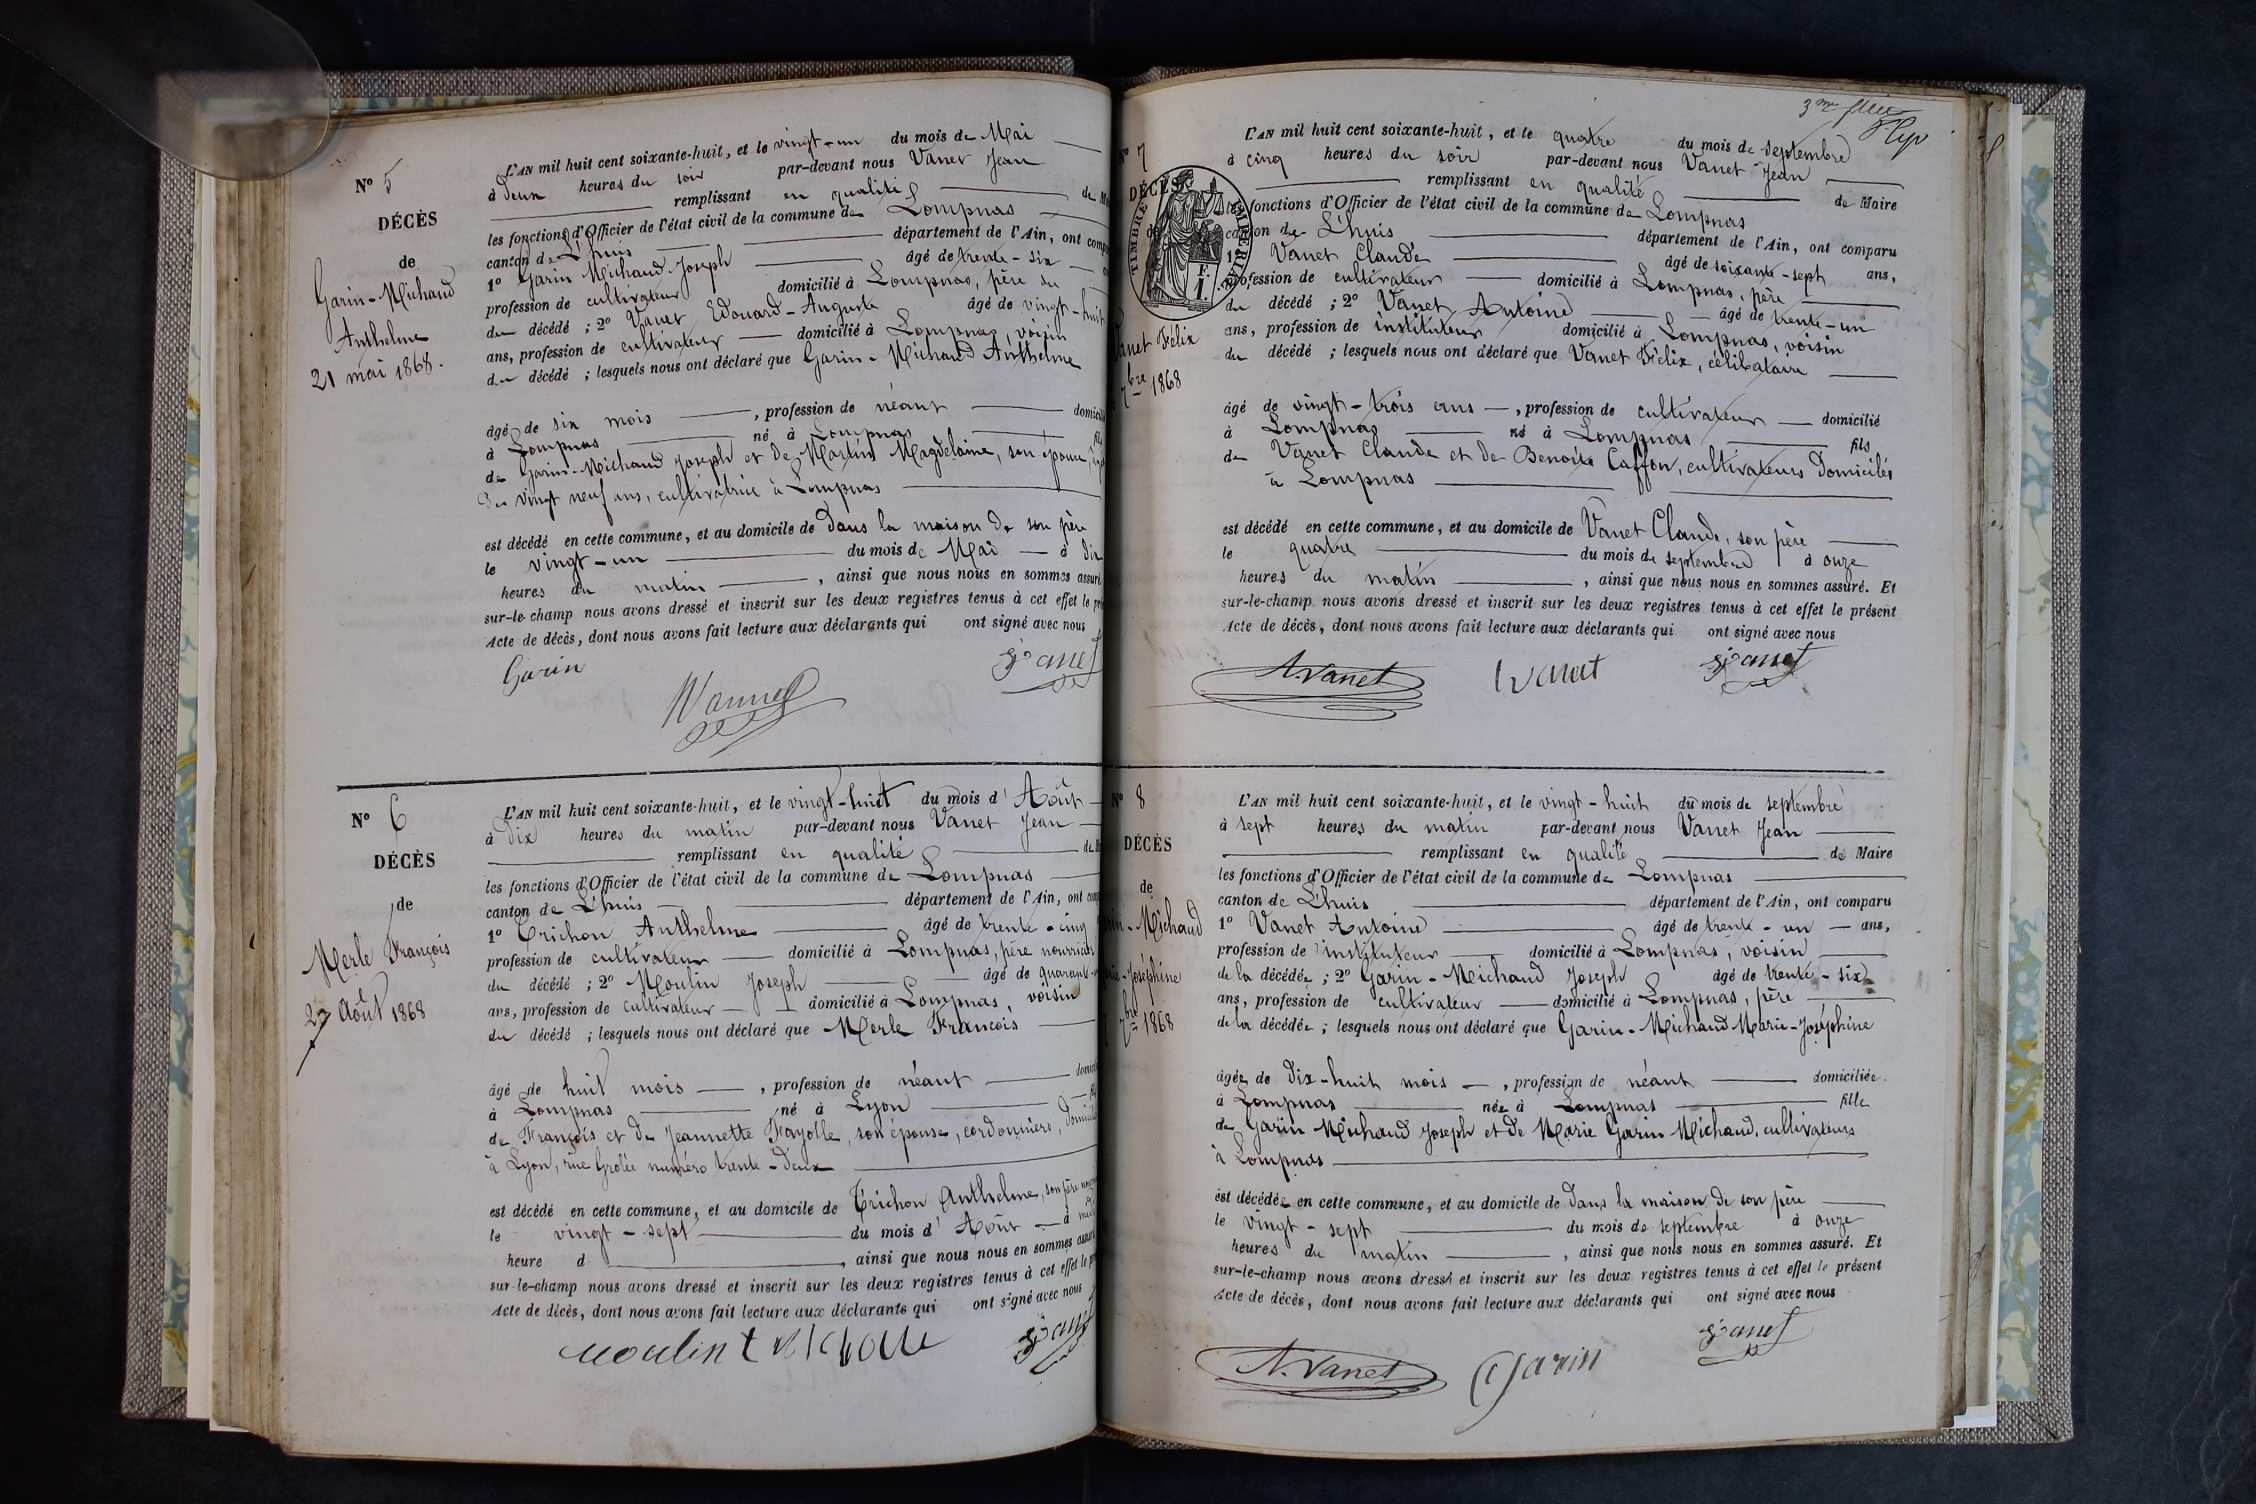 N° 5
DÉCÈS
de
Garin-Michaud
Anthelme
21 mai 1868.
L'AN mil huit cent soixante-huit, et le vingt-un du mois de Mai
à deux heures du soir par-devant nous Vanet Jean
remplissant en qualité de M
les fonctions d'Officier de l'état civil de la commune de Lompnas
canton de L'huis département de l'Ain, ont comp
1° Garin Michaud Joseph âgé de trente-six
profession de cultivateur domicilié à Lompnas, père du
du décédé ; 2° Vanet Edouard-Auguste âgé de vingt-huit
ans, profession de cultivateur domicilié à Lompnas, voisin
du décédé ; lesquels nous ont déclaré que Garin-Michaud Anthelme
âgé de six mois , profession de néant domicilié
à Lompnas né à Lompnas fils
de Garin-Michaud Joseph et de Martin Magdelaine, son épouse,
de vingt neuf ans, cultivatrice à Lompnas
est décédé en cette commune, et au domicile de dans la maison de son père
le vingt-un du mois de Mai à dix
heures du matin , ainsi que nous nous en sommes assuré
sur-le-champ nous avons dressé et inscrit sur les deux registres tenus à cet effet le pré
Acte de décès, dont nous avons fait lecture aux déclarants qui ont signé avec nous
Garin
Vannet
Vanet
N° 6
DÉCÈS
de
Merle François
27 Août 1868
L'AN mil huit cent soixante-huit, et le vingt-huit du mois d'Août
à dix heures du matin par-devant nous Vanet Jean
remplissant en qualité de M
les fonctions d'Officier de l'état civil de la commune de Lompnas
canton de L'huis département de l'Ain, ont comp
1° Trichon Anthelme âgé de trente-cinq
profession de cultivateur domicilié à Lompnas, père nourricier
du décédé ; 2° Moulin Joseph âgé de quarante
ans, profession de cultivateur domicilié à Lompnas, voisin
du décédé ; lesquels nous ont déclaré que Merle François
âgé de huit mois , profession de néant domicilié
à Lompnas né à Lyon
de François et de Jeannette Fayolle, son épouse, cordonniers, domiciliés
à Lyon, rue Grolée numéro trente-deux
est décédé en cette commune, et au domicile de Trichon Anthelme, son père
le vingt-sept du mois d'Août à
heure d , ainsi que nous nous en sommes assuré
sur-le-champ nous avons dressé et inscrit sur les deux registres tenus à cet effet le pr
Acte de décès, dont nous avons fait lecture aux déclarants qui ont signé avec nous
moulin trichon
Vanet
3me
N° 7
DÉCÈS
TIMBRE IMPERIAL
Vanet Félix
7bre 1868
L'AN mil huit cent soixante-huit, et le quatre du mois de septembre
à cinq heures du soir par-devant nous Vanet Jean
remplissant en qualité de Maire
fonctions d'Officier de l'état civil de la commune de Lompnas
canton de L'huis département de l'Ain, ont comparu
1° Vanet Claude âgé de soixante-sept ans,
profession de cultivateur domicilié à Lompnas, père
du décédé ; 2° Vanet Antoine âgé de trente-un
ans, profession de instituteur domicilié à Lompnas, voisin
du décédé ; lesquels nous ont déclaré que Vanet Félix, célibataire
âgé de vingt-trois ans , profession de cultivateur domicilié
à Lompnas né à Lompnas fils
de Vanet Claude et de Benoite Caffon, cultivateurs domiciliés
à Lompnas
est décédé en cette commune, et au domicile de Vanet Claude, son père
le quatre du mois de septembre à onze
heures du matin , ainsi que nous nous en sommes assuré. Et
sur-le-champ nous avons dressé et inscrit sur les deux registres tenus à cet effet le présent
Acte de décès, dont nous avons fait lecture aux déclarants qui ont signé avec nous
A. Vanet
Vanet
Vanet
N° 8
DÉCÈS
de
in-Michaud
ie-Joséphine
7bre 1868
L'AN mil huit cent soixante-huit, et le vingt-huit du mois de septembre
à sept heures du matin par-devant nous Vanet Jean
remplissant en qualité de Maire
les fonctions d'Officier de l'état civil de la commune de Lompnas
canton de L'huis département de l'Ain, ont comparu
1° Vanet Antoine âgé de trente-un ans,
profession de instituteur domicilié à Lompnas, voisin
de la décédée ; 2° Garin-Michaud Joseph âgé de trente-six
ans, profession de cultivateur domicilié à Lompnas, père
de la décédée ; lesquels nous ont déclaré que Garin-Michaud Marie-Joséphine
âgée de dix-huit mois , profession de néant domiciliée
à Lompnas née à Lompnas fille
de Garin Michaud Joseph et de Marie Garin Michaud, cultivateurs
à Lompnas
est décédée en cette commune, et au domicile de dans la maison de son père
le vingt-sept du mois de septembre à onze
heures du matin , ainsi que nous nous en sommes assuré. Et
sur-le-champ nous avons dressé et inscrit sur les deux registres tenus à cet effet le présent
Acte de décès, dont nous avons fait lecture aux déclarants qui ont signé avec nous
A. Vanet
Garin
Vanet